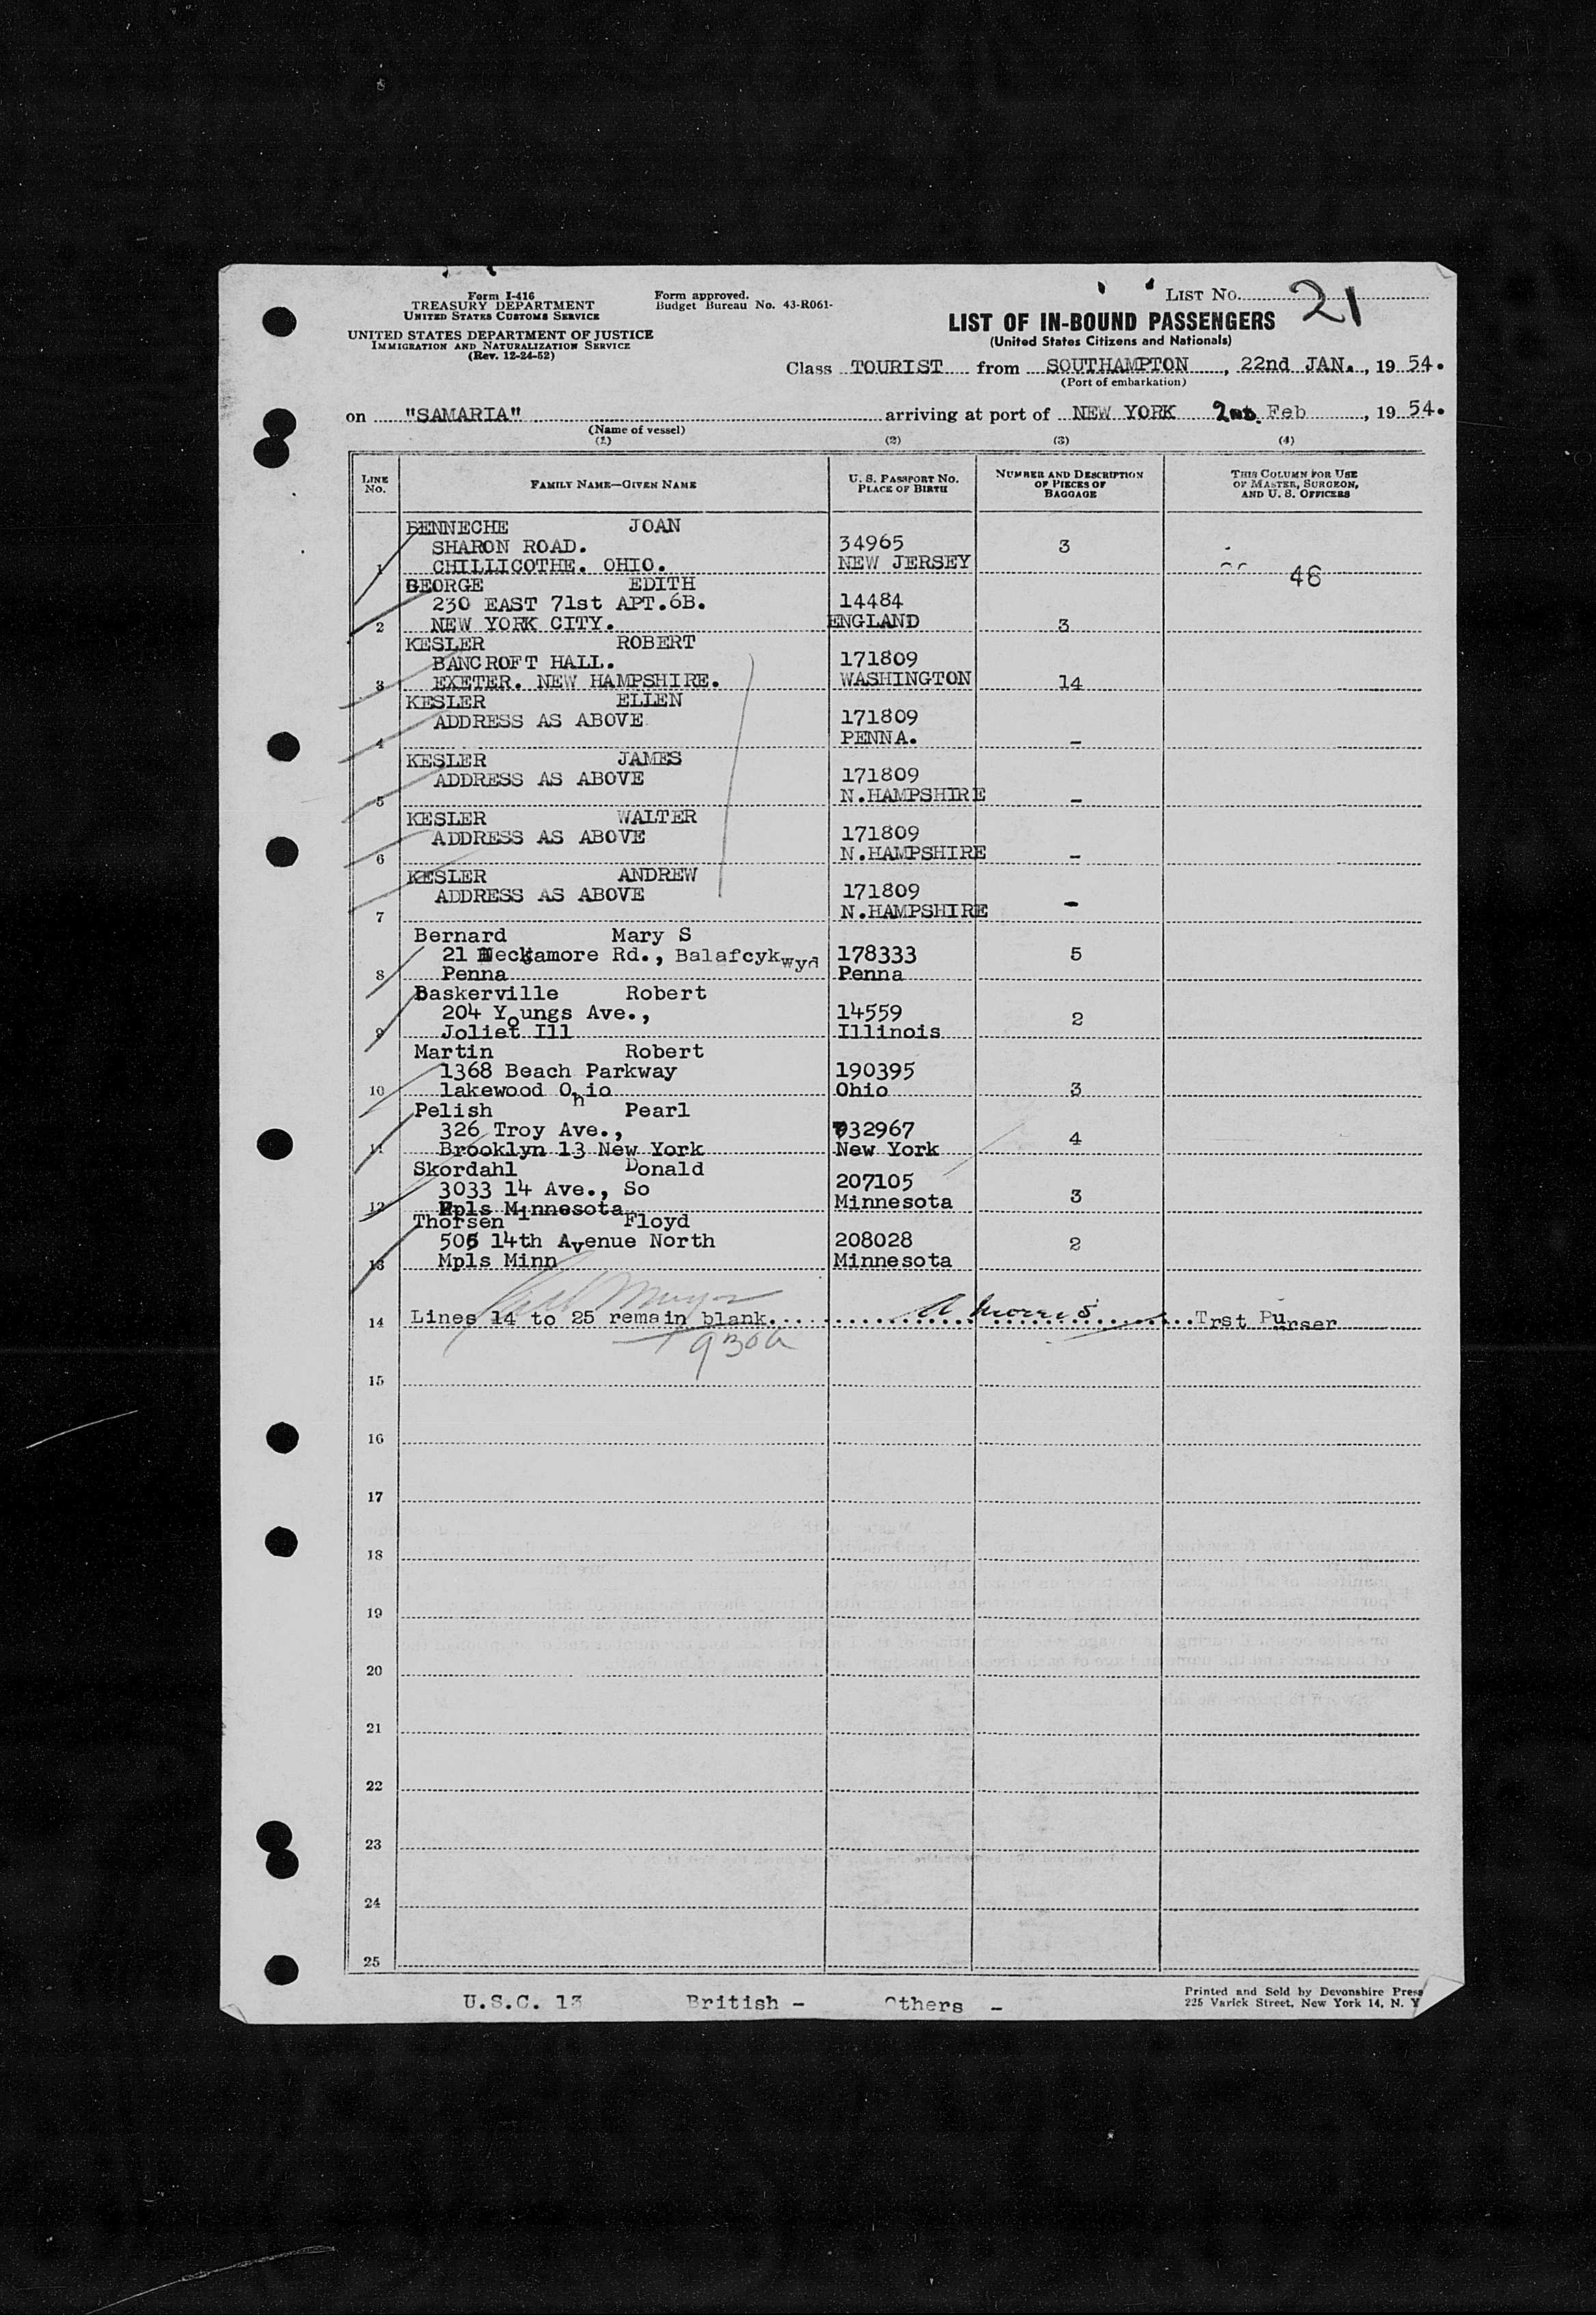 Form I-416
TREASURY DEPARTMENT
UNITED STATES CUSTOMS SERVICE
UNITED STATES DEPARTMENT OF JUSTICE
IMMIGRATION AND NATURALIZATION SERVICE
(Rev. 12-24-52)
Form approved.
Budget Bureau No. 43-R061-
LIST No. 21
LIST OF IN-BOUND PASSENGERS
(United States Citizens and Nationals)
Class TOURIST from SOUTHAMPTON, 22nd JAN., 19 54.
(Port of embarkation)
on "SAMARIA" arriving at port of NEW YORK Feb, 19 54.
(Name of vessel)
(1) (2) (3) (4)
LINE No. FAMILY NAME—GIVEN NAME U. S. PASSPORT No. PLACE OF BIRTH NUMBER AND DESCRIPTION OF PIECES OF BAGGAGE THIS COLUMN FOR USE OF MASTER, SURGEON, AND U. S. OFFICERS
BENNECHE JOAN
SHARON ROAD. 34965 3
1 CHILLICOTHE. OHIO. NEW JERSEY 48
GEORGE EDITH
230 EAST 71st APT.6B. 14484
2 NEW YORK CITY. ENGLAND 3
KESLER ROBERT
BANCROFT HALL. 171809
3 EXETER. NEW HAMPSHIRE. WASHINGTON 14
KESLER ELLEN
ADDRESS AS ABOVE 171809
4 PENNA. -
KESLER JAMES
ADDRESS AS ABOVE 171809
5 N.HAMPSHIRE -
KESLER WALTER
ADDRESS AS ABOVE 171809
6 N.HAMPSHIRE -
KESLER ANDREW
ADDRESS AS ABOVE 171809
7 N.HAMPSHIRE -
Bernard Mary S
21 Rd., Balafcykwyd 178333 5
8 Penna Penna
Baskerville Robert
204 Youngs Ave., 14559 2
9 Joliet Ill Illinois
Martin Robert
1368 Beach Parkway 190395
10 lakewood Ohio Ohio 3
Pelish Pearl
326 Troy Ave., 932967 4
11 Brooklyn 13 New York New York
Skordahl Donald
3033 14 Ave., So 207105 3
12 Mpls Minnesota Minnesota
Thorsen Floyd
505 14th Avenue North 208028 2
13 Mpls Minn Minnesota
14 Lines 14 to 25 remain blank. Trst Purser
930a
15
16
17
18
19
20
21
22
23
24
25
U.S.C. 13 British - Others -
Printed and Sold by Devonshire Press
225 Varick Street, New York 14, N. Y